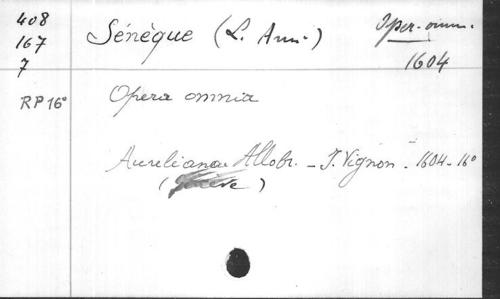 408
167
7
Sénèque (L. Ann.)
Oper. omn.
1604
RP 16°
Opera omnia
Aurelianae Allobr. - J. Vignon - 1604 - 16°
(Genève)